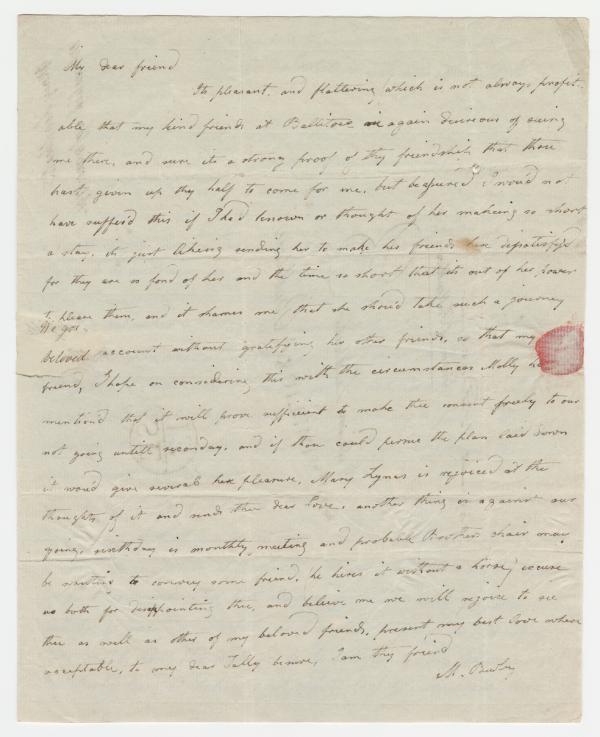 My dear friend
Its pleasant, and flattering, which is not always profit-
able that my kind friends at Ballitore is again desireous of seeing
me there, and sure its a strong proof of thy friendship that thou
hast given up thy half to come for me, but be assured I would not
have suffer'd this if I had known or thought of her makeing so short
a stay, its just like sending her to make her friends here dissatisfy'd
for they are so fond of her and the time so short that its out of her power
to please them, and it shames me that she should take such a journey
on
beloved account without gratifying her other friends, so that my
friend, I hope on considering this with the circumstances Molly
mention'd that it will prove sufficient to make thee consent freely to our
not going untill seconday, and if thou could persue the plan laid down
it would give several here pleasure, Mary Lynas is rejoiced at the
thoughts of it and sends thee dear love, another thing is against our
going, sixthday is monthly meeting and probable Brothers chair may
be wanting to convey some friend, he hires it without a horse, excuse
us both for disappointing thee, and believe me we will rejoice to see
thee as well as other of my beloved friends, present my best love where
acceptable, to my dear Sally besure, I am thy friend
M.